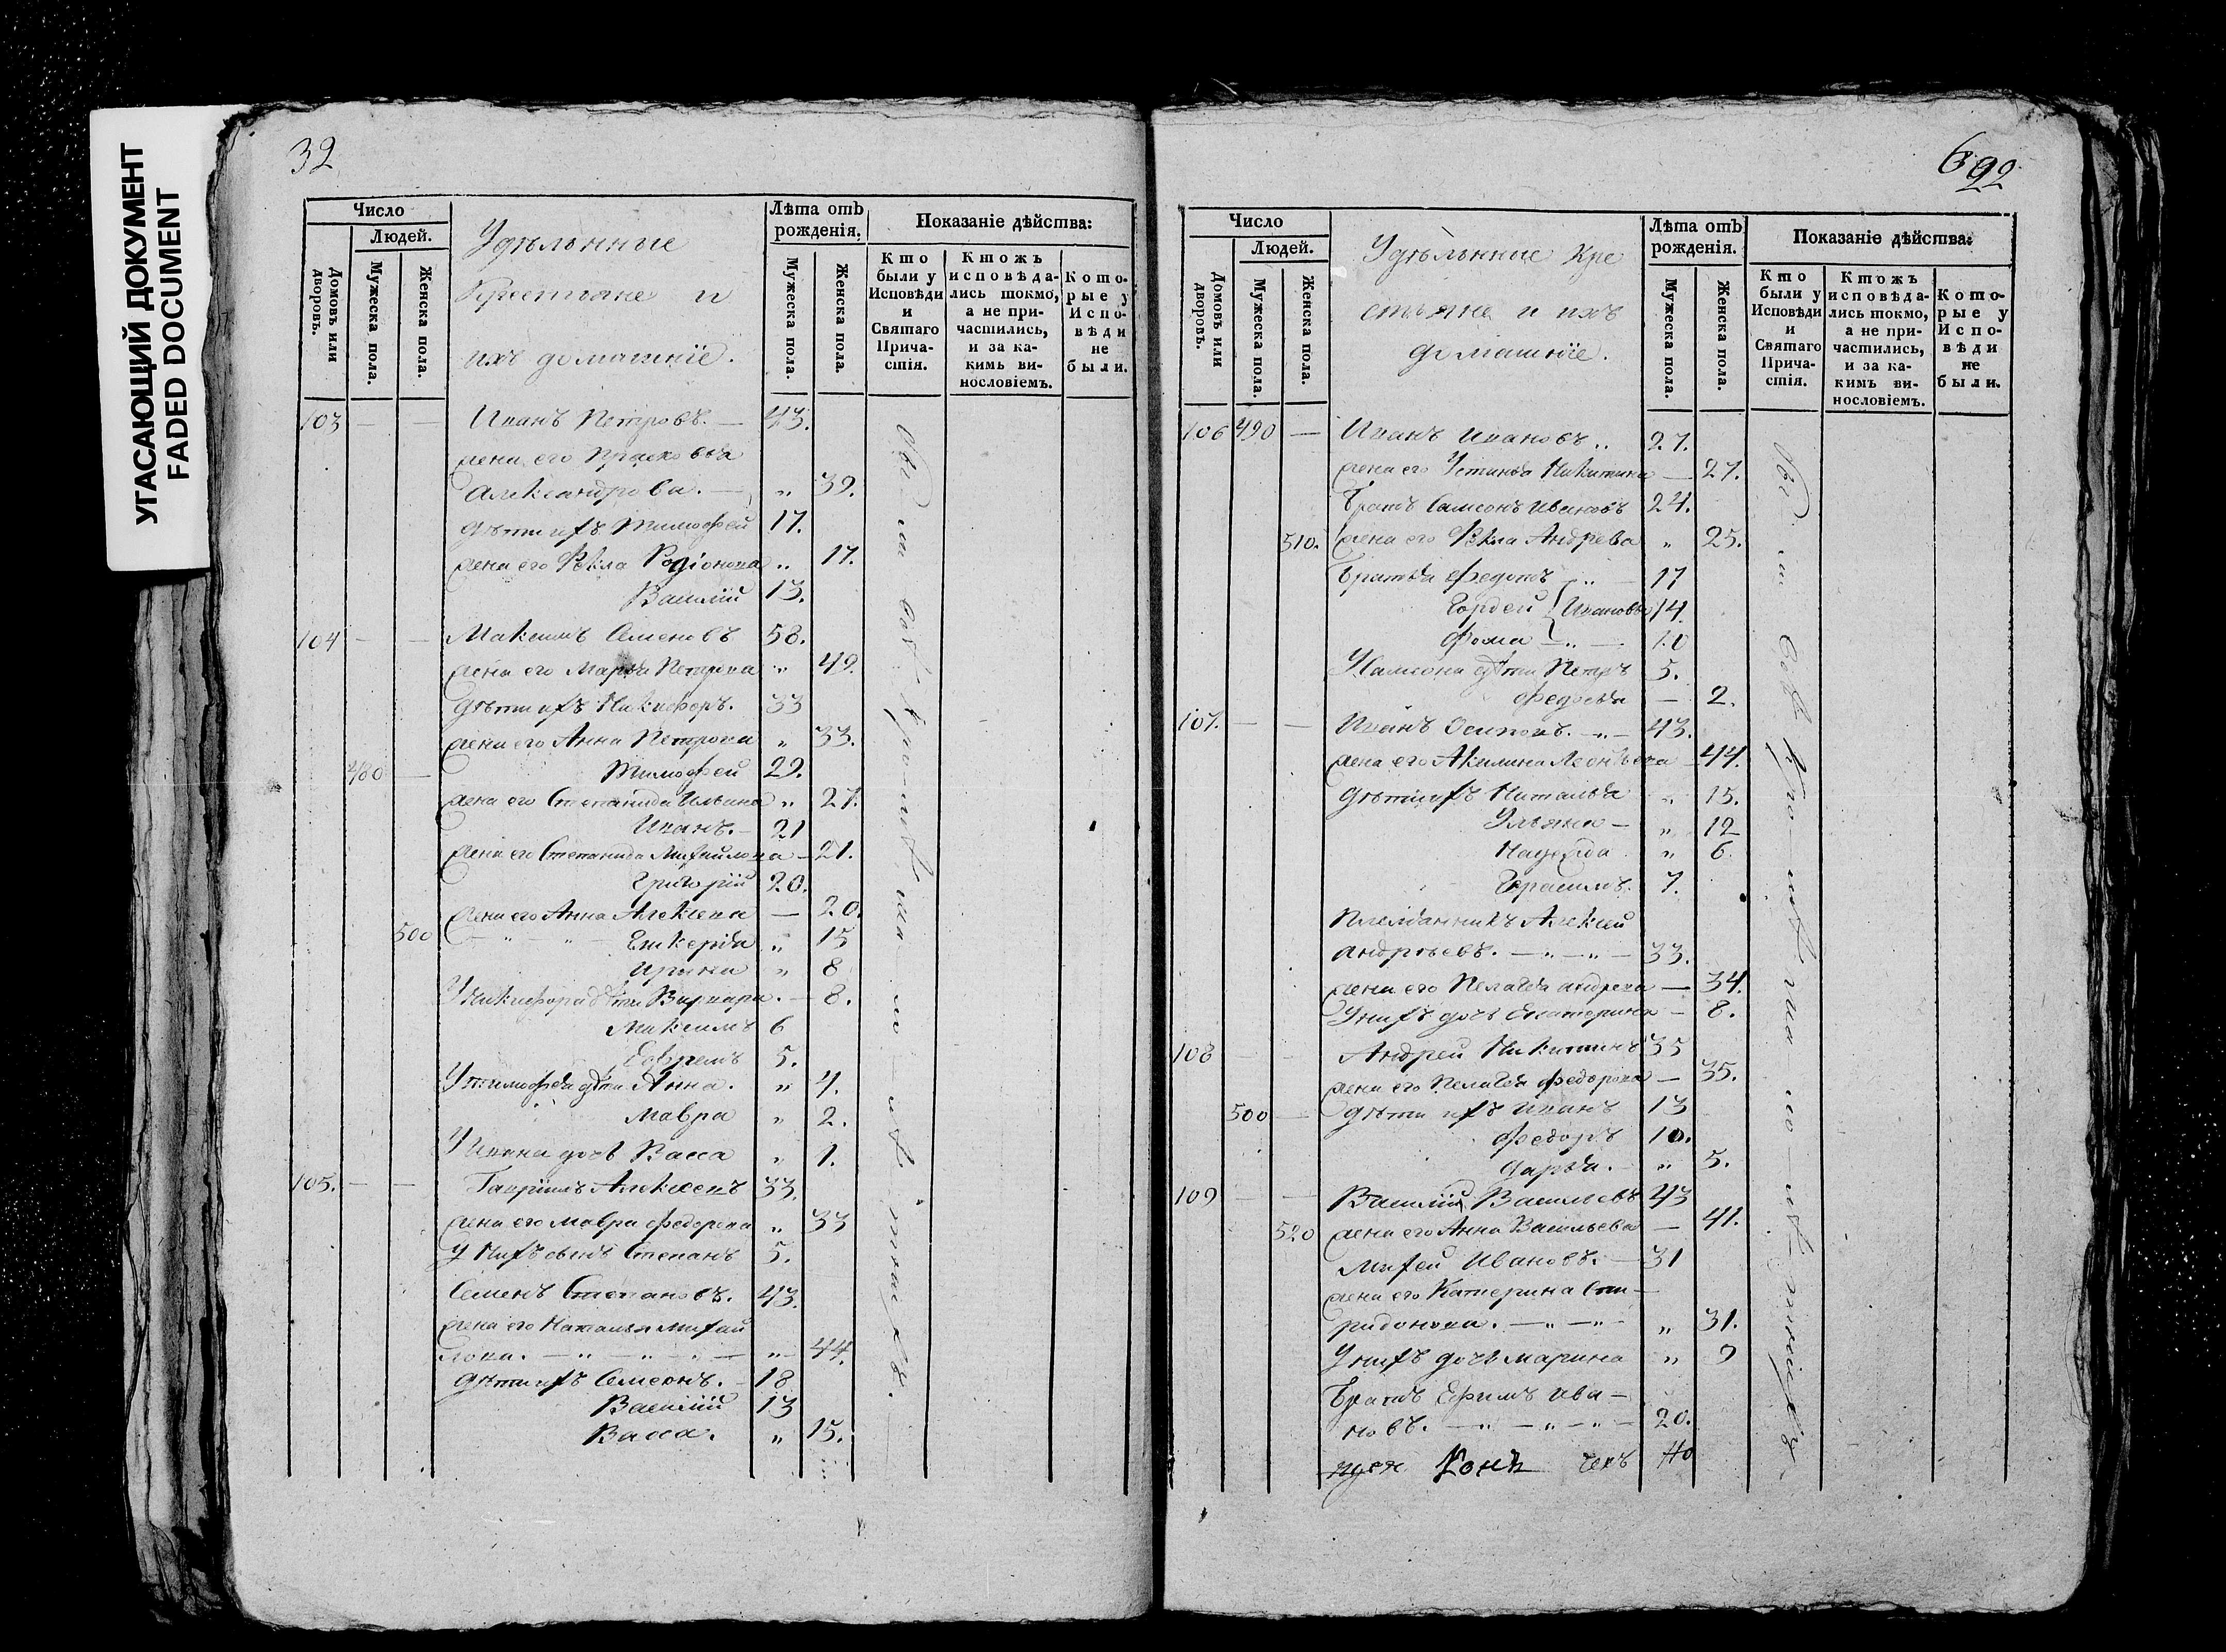 УГАСАЮЩИЙ ДОКУМЕНТ
FADED DOCUMENT
32
Число
Людей.
Домовъ или дворовъ.
Мужеска пола.
Женска пола.
Удѣльныые
Крестьяне и
ихъ домашніе.
Лѣта отъ рожденія.
Мужеска пола.
Женска пола.
Показаніе дѣйства:
Кто были у Исповѣди и Святаго Прича-стія.
Ктожъ исповѣда-лись токмо, а не при-частились, и за ка-кимъ ви-нословіемъ.
Кото-рые у Испо-вѣди не были.
103 — — Иванъ Петровъ. — 43.
жена его Прасковья
Александрова. — „ 39.
дѣти ихъ Тимофей 17.
жена его Ѳекла Родіонова „ 17.
Василій 13.
104 — — Максимъ Семеновъ 58.
жена его Марья Петрова „ 49.
дѣти ихъ Никифоръ. 33
жена его Анна Петрова „ 33.
480 — Тимофей 29.
жена его Степанида Ильина „ 27.
Иванъ. — 21
жена его Степанида Михайлова — 21.
Григорій 20.
жена его Анна Алексеева — 20.
500 — „ — „ — Гликерья „ 15
Ирина „ 8
У Никифора дѣти Варвара. — 8.
Максимъ 6
Ефремъ 5.
У Тимофея дѣти Анна. „ 4.
Мавра „ 2.
У Ивана дочь Васса „ 1.
105. — — Гаврилъ Алексеевъ 33.
жена его Мавра Федорова „ 33
У нихъ сынъ Степанъ 5.
Семенъ Степановъ. 43.
жена его Наталья Михай
лова. — „ — „ — „ — 44.
дѣти ихъ Семеонъ. — 18
Василій 13
Васса. „ 15.
692
Число
Людей.
Домовъ или дворовъ.
Мужеска пола.
Женска пола.
Удѣльныые Кре
стьяне и ихъ
домашніе.
Лѣта отъ рожденія.
Мужеска пола.
Женска пола.
Показаніе дѣйства:
Кто были у Исповѣди и Святаго Прича-стія.
Ктожъ исповѣда-лись токмо, а не при-частились, и за ка-кимъ ви-нословіемъ.
Кото-рые у Испо-вѣди не были.
106 490 — Иванъ Ивановъ „ 27.
жена его Устинья Никитина — 27.
Братъ Самсонъ Ивановъ 24.
510. жена его Ѳекла Андреева „ 25.
Братья Федотъ „ — 17
Гордей Ивановы 14.
Фома — „ — 10
У Самсона дѣти Петръ 5.
Федосья — 2.
107. — — Иванъ Осиповъ. — „ — 43.
жена его Акилина Леонтьева — 44.
дѣти ихъ Наталья „ 15.
Ульяна — „ 12
Надежда „ 6.
Герасимъ. 7.
Племянникъ Алексей
Андреевъ. — „ — „ — 33.
жена его Пелагея Андреева — 34.
У нихъ дочь Екатерина — 8.
108 — — Андрей Никитинъ 35
жена его Пелагея Федорова — 35.
500 — дѣти ихъ Иванъ 13
Федоръ 10.
Дарья. — „ 5.
109 — — Василій Васильевъ 43
520 жена его Анна Васильева — 41.
Михей Ивановъ. — 31
жена его Катерина Спи —
ридонова. — „ — „ — „ 31.
У нихъ дочь Марина „ 9
Братъ Ефимъ Ива —
новъ. — „ — „ — „ — 20.